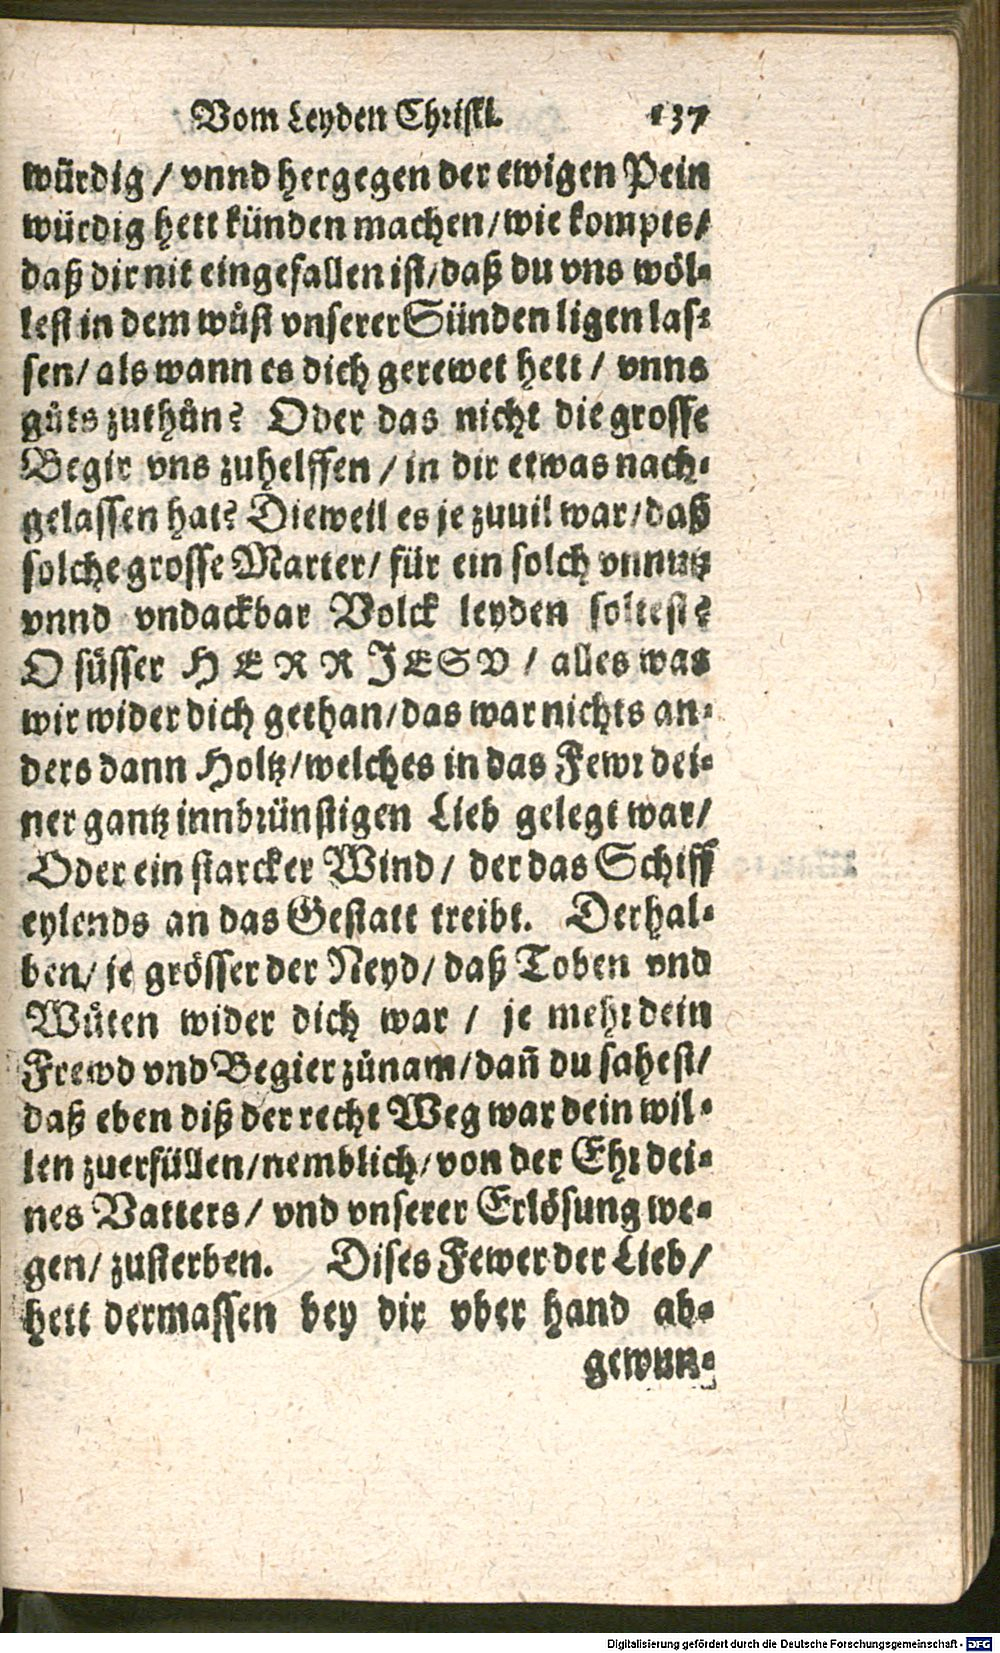 Vom Leyden Christi. 137
würdig / vnnd hergegen der ewigen Pein
würdig hett künden machen / wie kompts /
daß dir nit eingefallen ist / daß du vns wöl-
lest in dem wůst vnserer Sünden ligen las-
sen / als wann es dich gerewet hett / vnns
gůts zuthůn? Oder das nicht die grosse
Begir vns zuhelffen / in dir etwas nach-
gelassen hat? Dieweil es je zuuil war / daß
solche grosse Marter / für ein solch vnnutz
vnnd vndackbar Volck leyden soltest?
O süsser HERR JESV / alles was
wir wider dich gethan / das war nichts an-
ders dann Holtz / welches in das Fewr dei-
ner gantz innbrünstigen Lieb gelegt war /
Oder ein starcker Wind / der das Schiff
eylends an das Gestatt treibt. Derhal-
ben / je grösser der Neyd / daß Toben vnd
Wüten wider dich war / je mehr dein
Frewd vnd Begier zůnam / dañ du sahest /
daß eben diß der recht Weg war dein wil-
len zuerfüllen / nemblich / von der Ehr dei-
nes Vatters / vnd vnserer Erlösung we-
gen / zusterben. Dises Fewer der Lieb /
hett dermassen bey dir vber hand ab-
gewun-
Digitalisierung gefördert durch die Deutsche Forschungsgemeinschaft - DFG